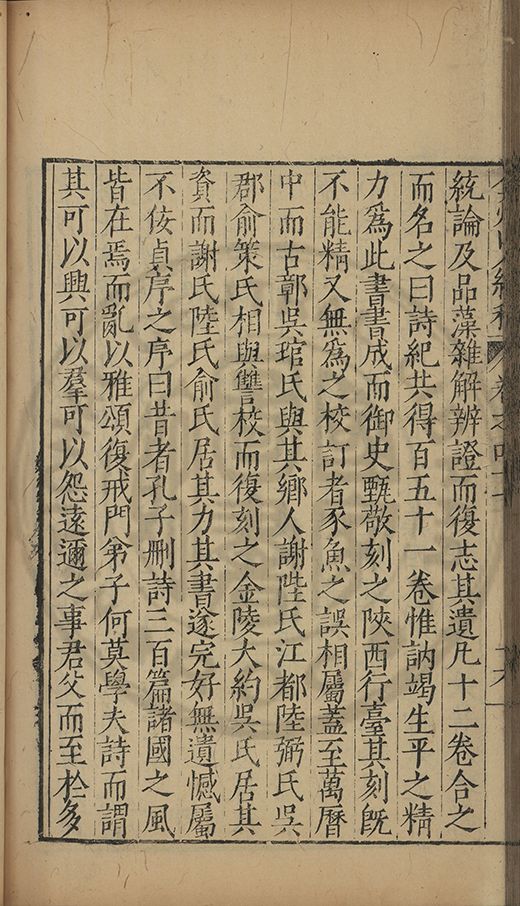 卷之四十二
統論及品藻雜解辨證而復志其遺凡十二卷合之
而名之曰詩紀共得百五十一卷惟訥竭生平之精
力爲此書書成而御史甄敬刻之陝西行臺其刻旣
不能精又無爲之校訂者豕魚之誤相屬蓋至萬曆
中而古鄣吳琯氏與其鄉人謝陛氏江都陸弼氏吳
郡俞策氏相與讐校而復刻之金陵大約吳氏居其
資而謝氏陸氏俞氏居其力其書遂完好無遺憾屬
不佞貞序之序曰昔者孔子刪詩三百篇諸國之風
皆在焉而亂以雅頌復戒門弟子何莫學夫詩而謂
其可以興可以羣可以怨遠邇之事君父而至於多